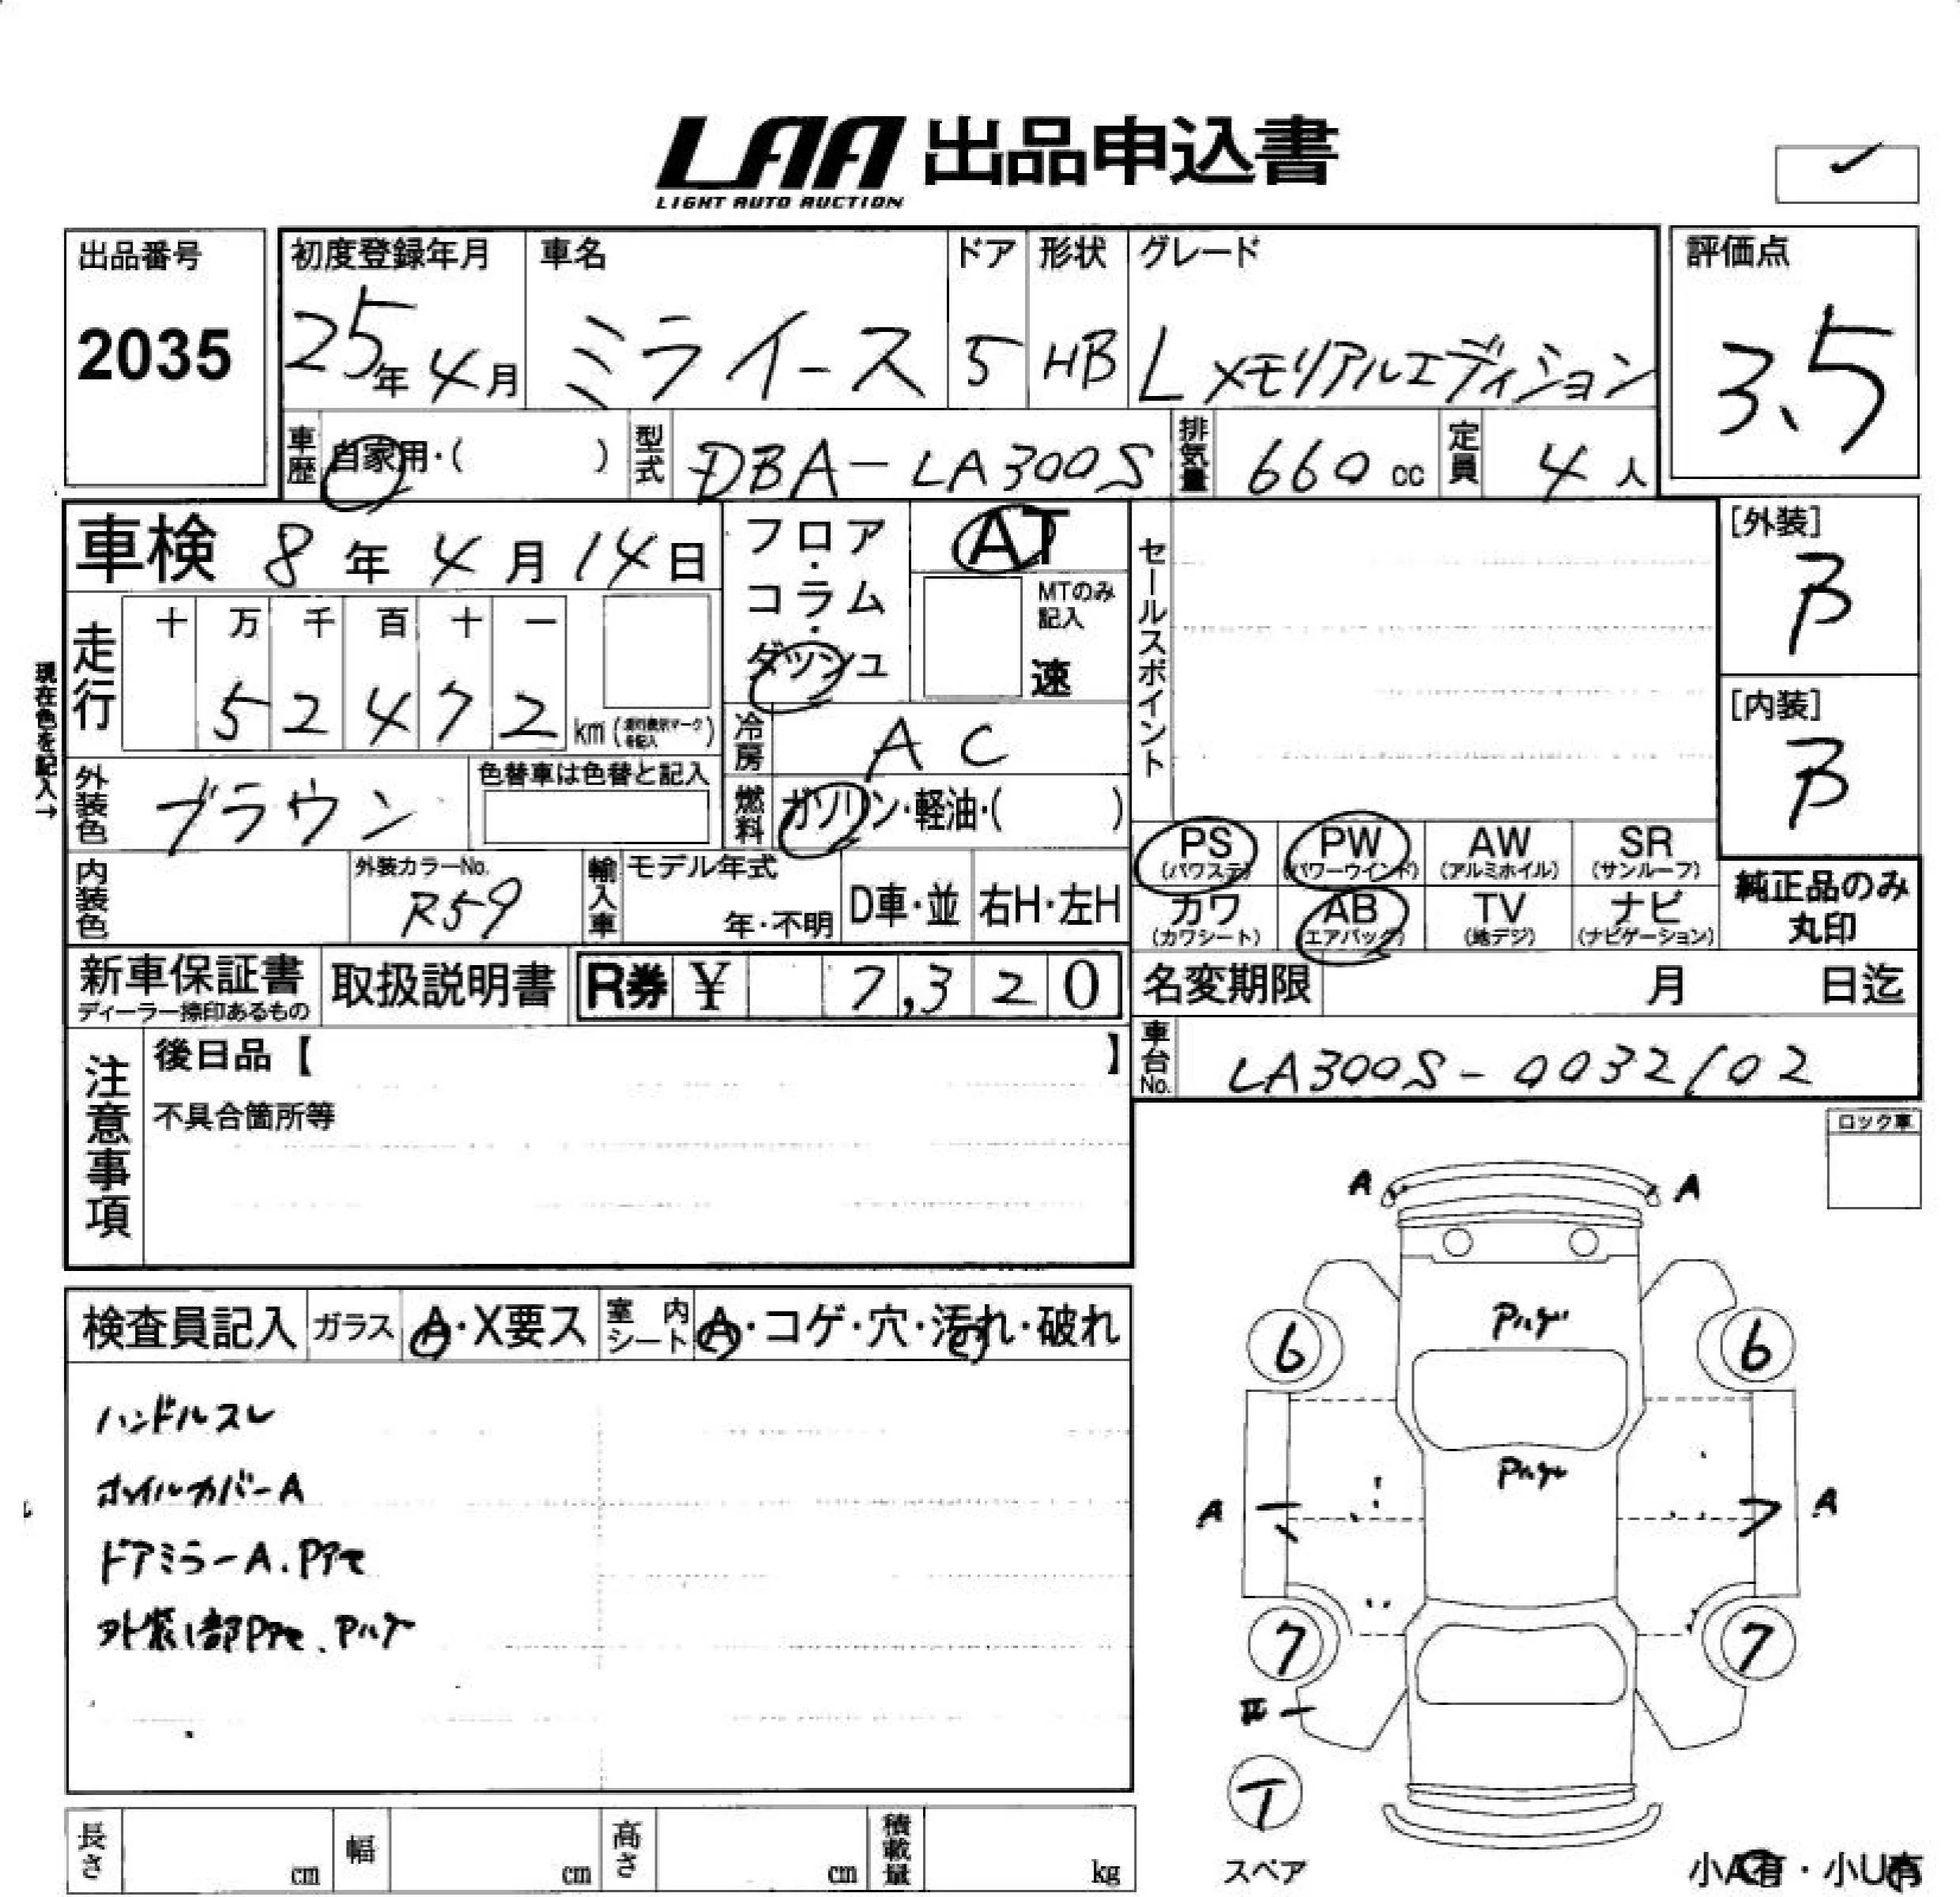 LAA 出品申込書
LIGHT AUTO AUCTION
出品番号
2035
初度登録年月
25年4月
車名
ミライース
ドア
5
形状
HB
グレード
Lメモリアルエディション
評価点
3.5
車歴
自家用・( )
型式
DBA-LA300S
排気量
660 cc
定員
4人
車検 8年4月14日
走行
十 万 千 百 十 一
5 2 4 7 2 km
現在色を記入→
外装色
ブラウン
色替車は色替と記入
内装色
外装カラーNo.
R59
フロア・コラム・ダッシュ
AT
MTのみ記入
速
冷房
AC
燃料
ガソリン・軽油・( )
輸入車
モデル年式
年・不明
D車・並
右H・左H
セールスポイント
[外装]
B
[内装]
B
PS
(パワステ)
PW
(パワーウインド)
AW
(アルミホイル)
SR
(サンルーフ)
カワ
(カワシート)
AB
(エアバッグ)
TV
(地デジ)
ナビ
(ナビゲーション)
純正品のみ
丸印
新車保証書
ディーラー捺印あるもの
取扱説明書
R券 ¥ 7,320
名変期限 月 日迄
車台No.
LA300S-0032102
注意事項
後日品【 】
不具合箇所等
ロック車
検査員記入
ガラス
A・X要ス
室内シート
A・コゲ・穴・汚れ・破れ
ハンドルスレ
ホイルカバーA
ドアミラーA.Pアセ
外装1部Pアセ、Pハゲ
A
A
Pハゲ
6
6
Pハゲ
A
A
7
7
T
スペア
小A有・小U有
長さ
cm
幅
cm
高さ
cm
積載量
kg